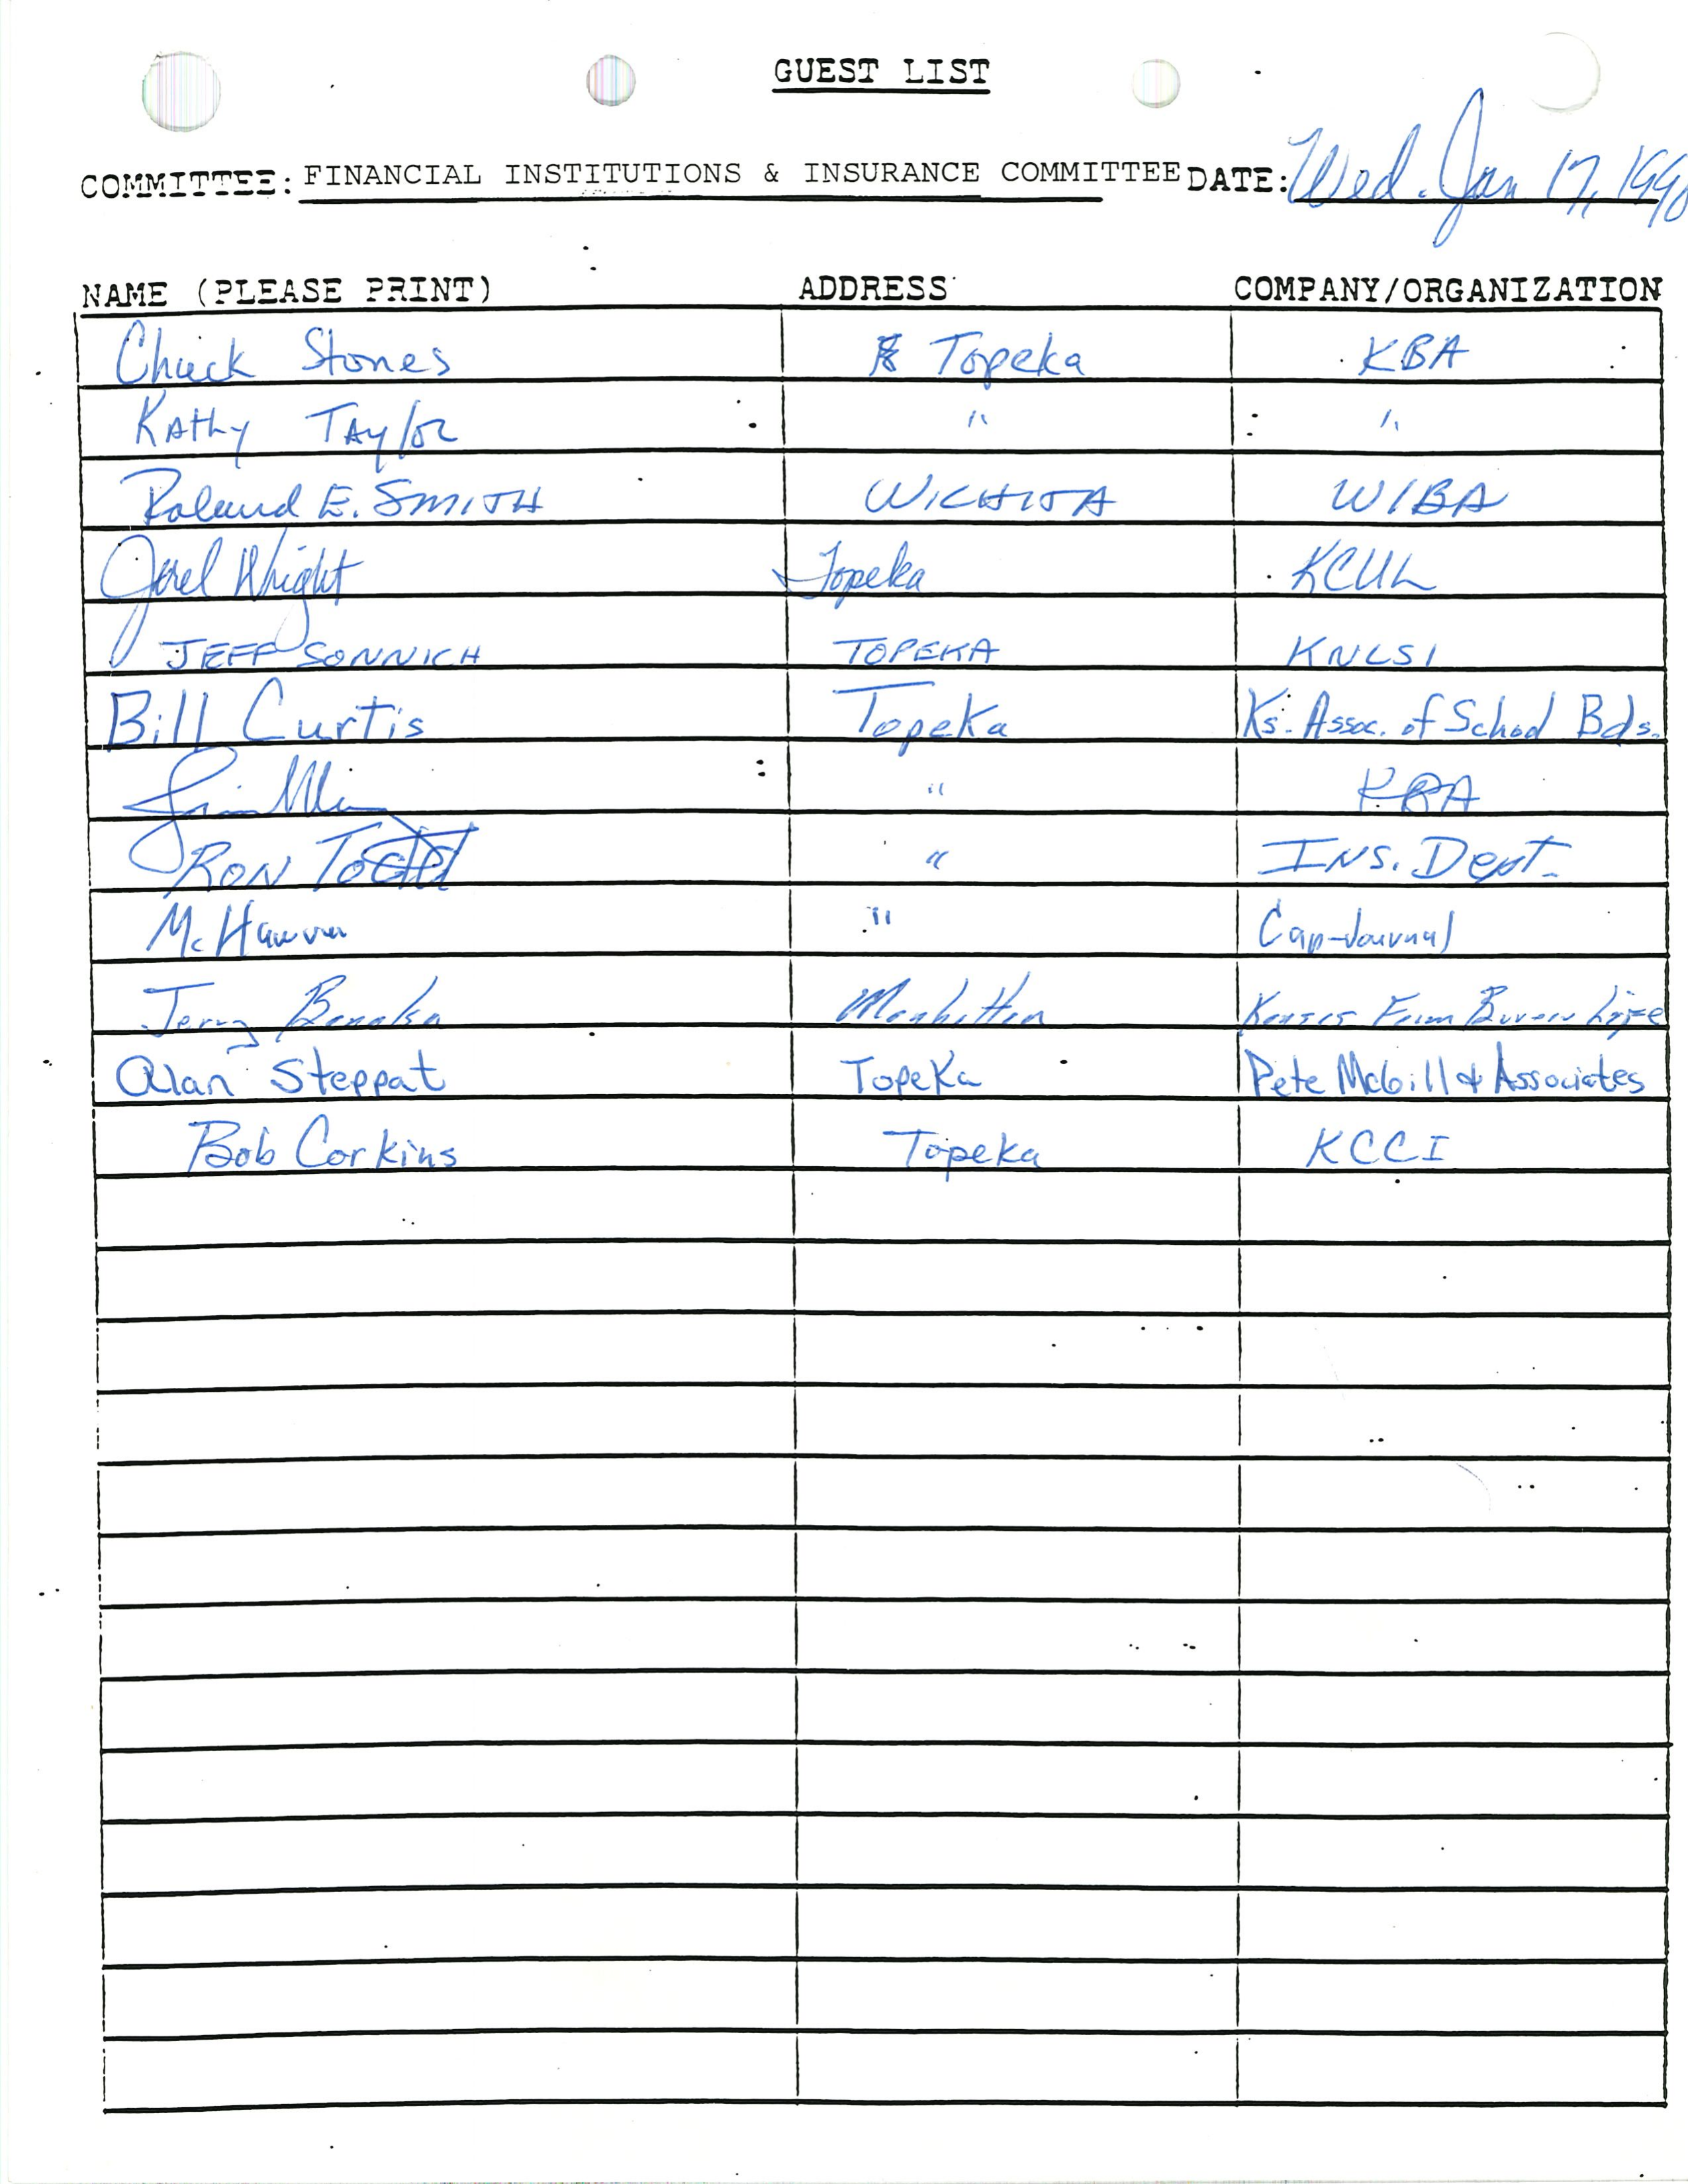 GUEST LIST
COMMITTEE: FINANCIAL INSTITUTIONS & INSURANCE COMMITTEE DATE: Wed. Jan 17, 1990
NAME (PLEASE PRINT) ADDRESS COMPANY/ORGANIZATION
Chuck Stones Topeka KBA
Kathy Taylor " "
Roland E. Smith WICHITA WIBA
Jerel Wright Topeka KCUL
JEFF SONNICH TOPEKA KNLSI
Bill Curtis Topeka Ks. Assoc. of School Bds.
" KBA
RON Todd " INS. Dept.
" Cap-Journal
Jerry Manhattan Kansas Farm Bureau Life
Alan Steppat Topeka Pete McGill & Associates
Bob Corkins Topeka KCCI